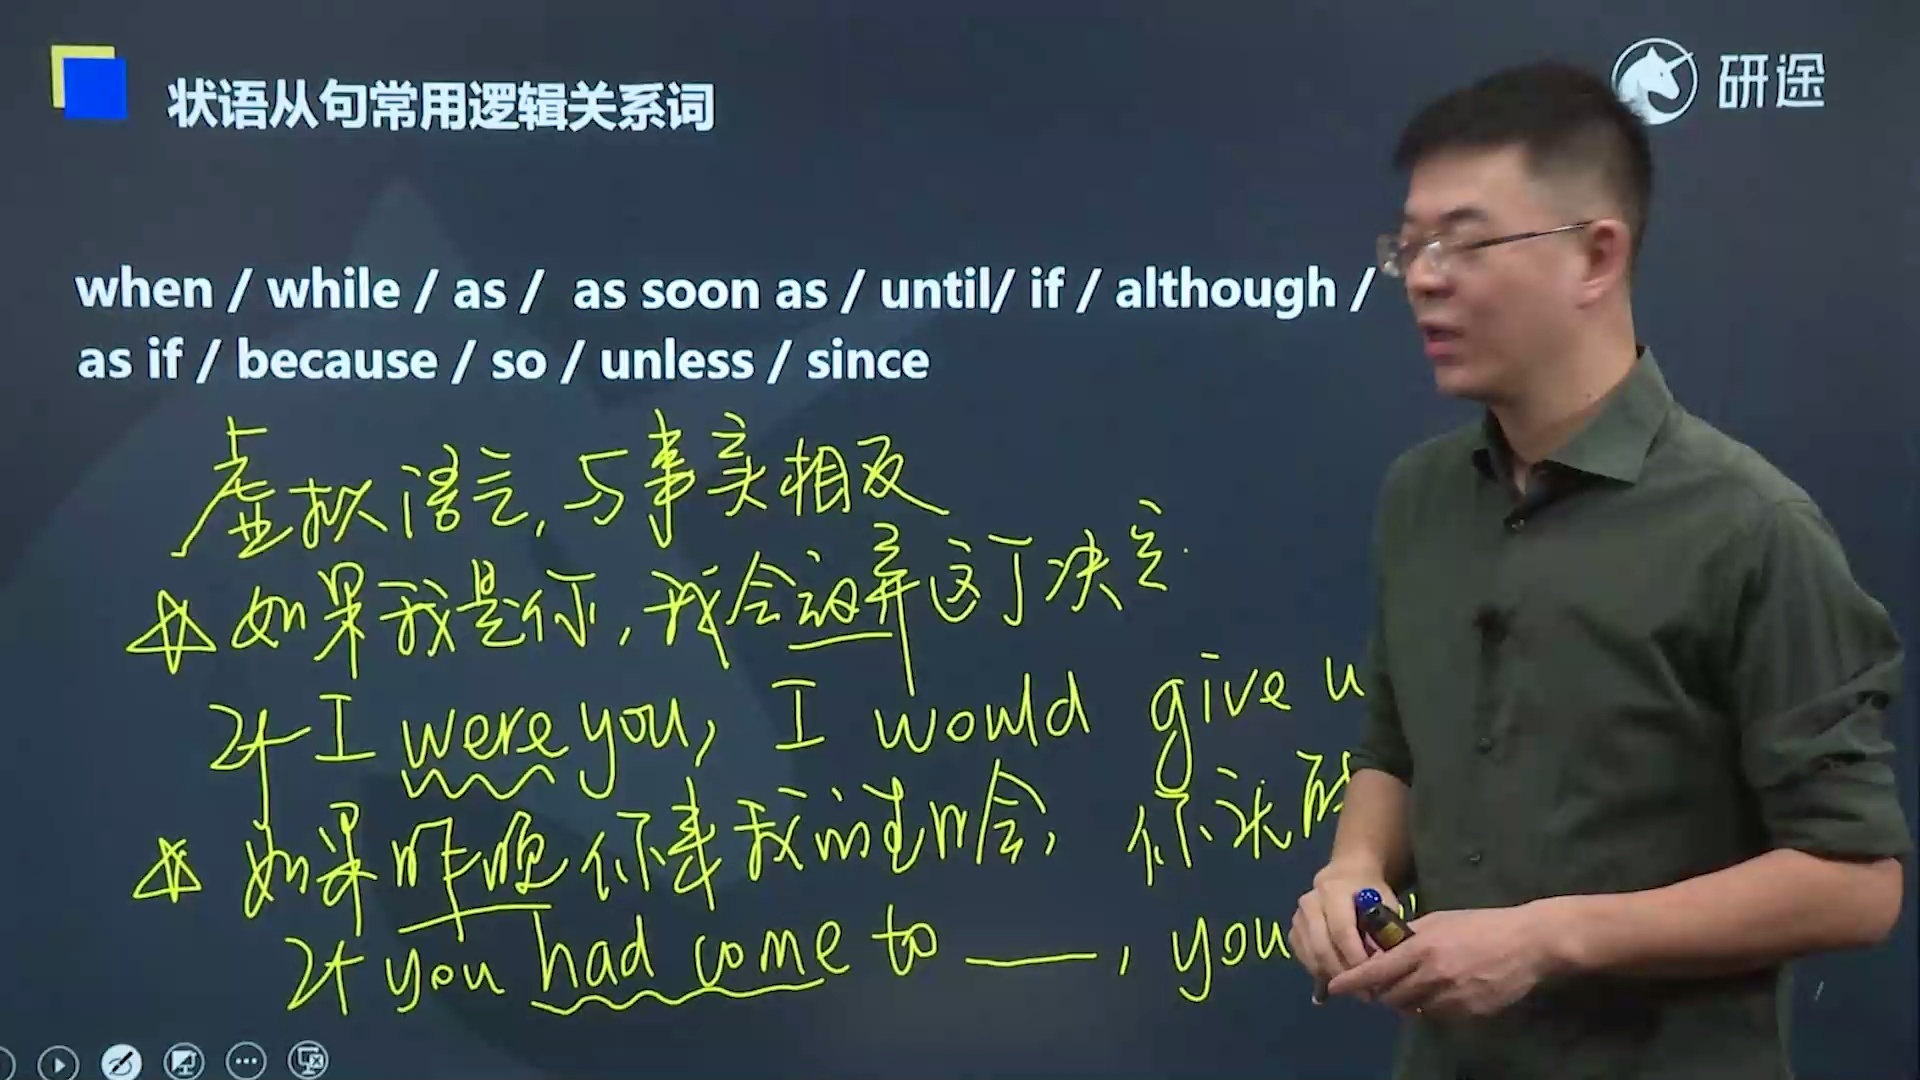 状语从句常用逻辑关系词
研途
when / while / as / as soon as / until/ if / although /
as if / because / so / unless / since
虚拟语言,与事实相反
如果我是你,我会放弃这个决定.
If I were you, I would give u
如果昨晚你来我的生日会,你就能
If you had come to ——, you